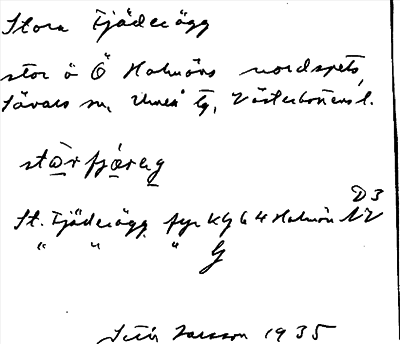 Stora Fjäderägg
stor ö Ö Holmöns nordspets,
Sävars sn. Umeå tg, Västerbottens l.
stōrfjǣreg
D3
St. Fjäderägg fyr kg 64 Holmön NV
" " " G
1935